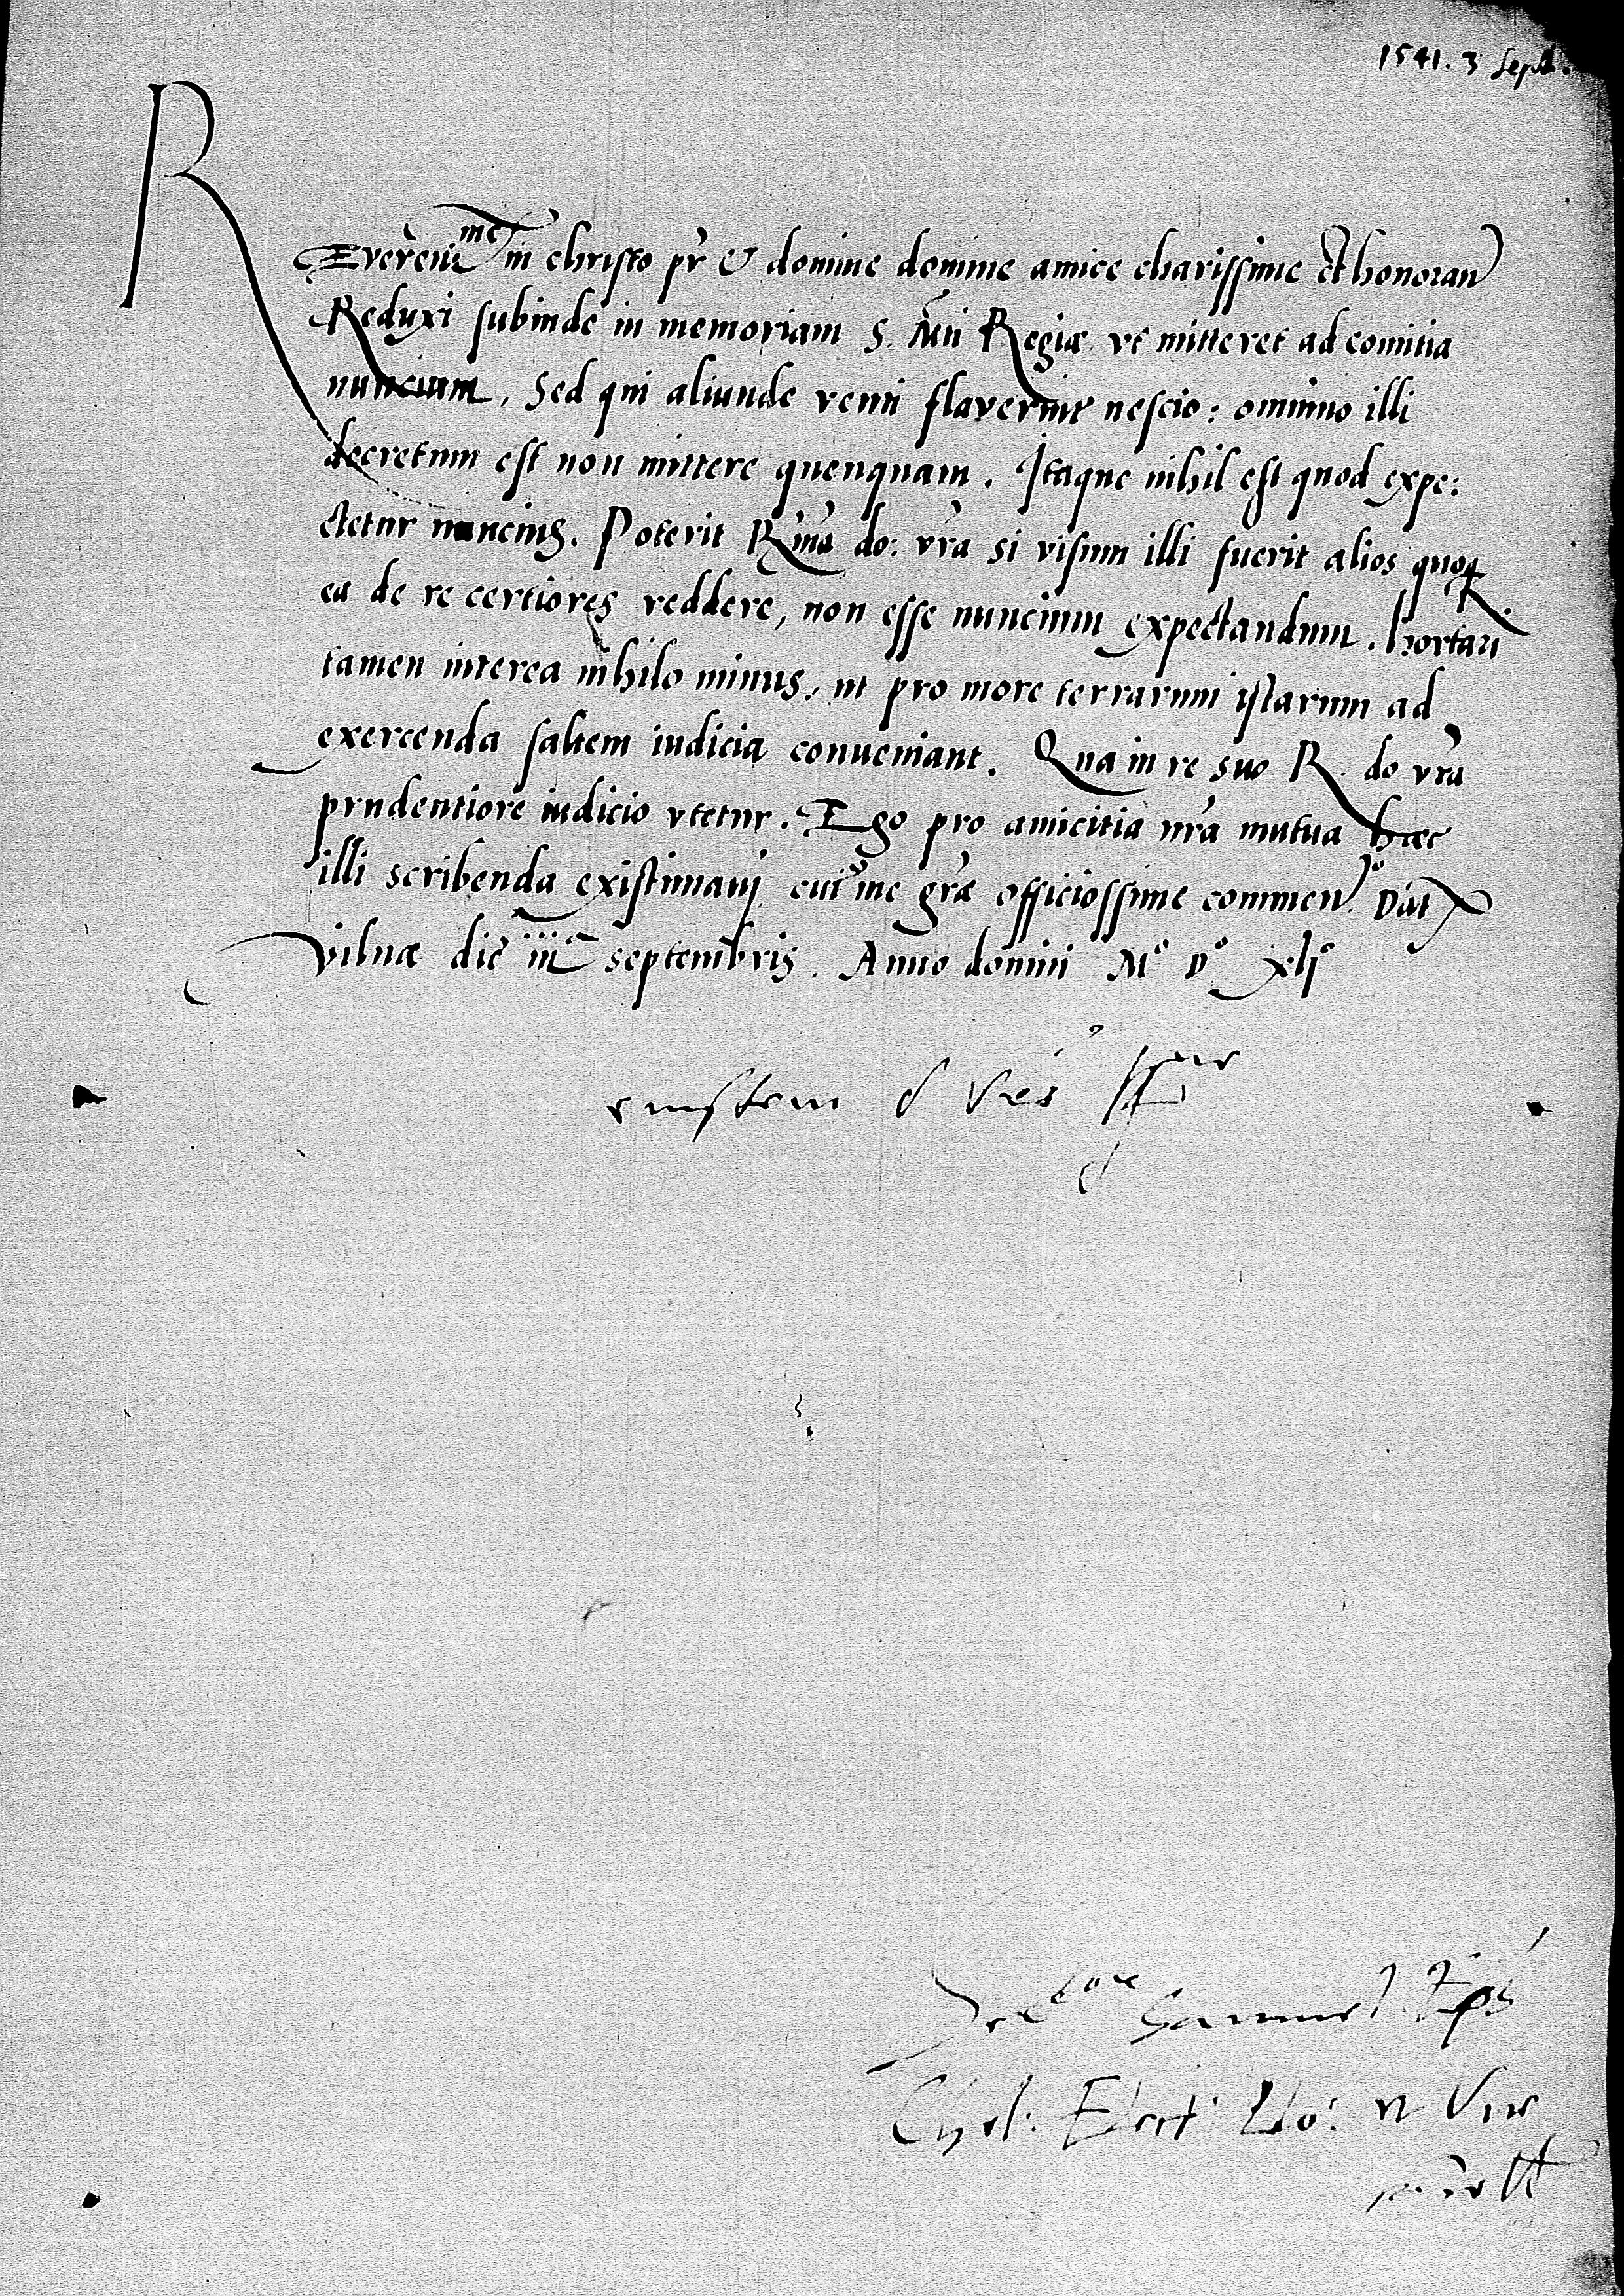 1541. 3 Sept.
REveren^me in christo pr̃ & domine domine amice charissime et honoran̄
Reduxi subinde in memoriam S. Mti Regiæ vt mitteret ad comitia
nuncium, Sed qui aliunde venti flaverint nescio: omnino illi
decretum est non mittere quenquam. Itaque nihil est quod expe:
ctetur nuncius. Poterit R̃ma do: vr̃a si visum illi fuerit alios quoq
ea de re certiores reddere, non esse nuncium expectandum. hortari
tamen interea nihilo minus, ut pro more terrarum istarum ad
exercenda saltem iudicia conveniant. Qua in re suo R. do vr̃a
prudentiore iudicio vtetur. Ego pro amicitia nr̃a mutua hæc
illi scribenda existimavi cuiꝰ me gr̃æ officiossime commendo. Dat
vilnæ die iii septembris. Anno domini M° D° xli°
eiusdem d Vres
Samuel Eps
Chel: Elect: Plo: et Vice